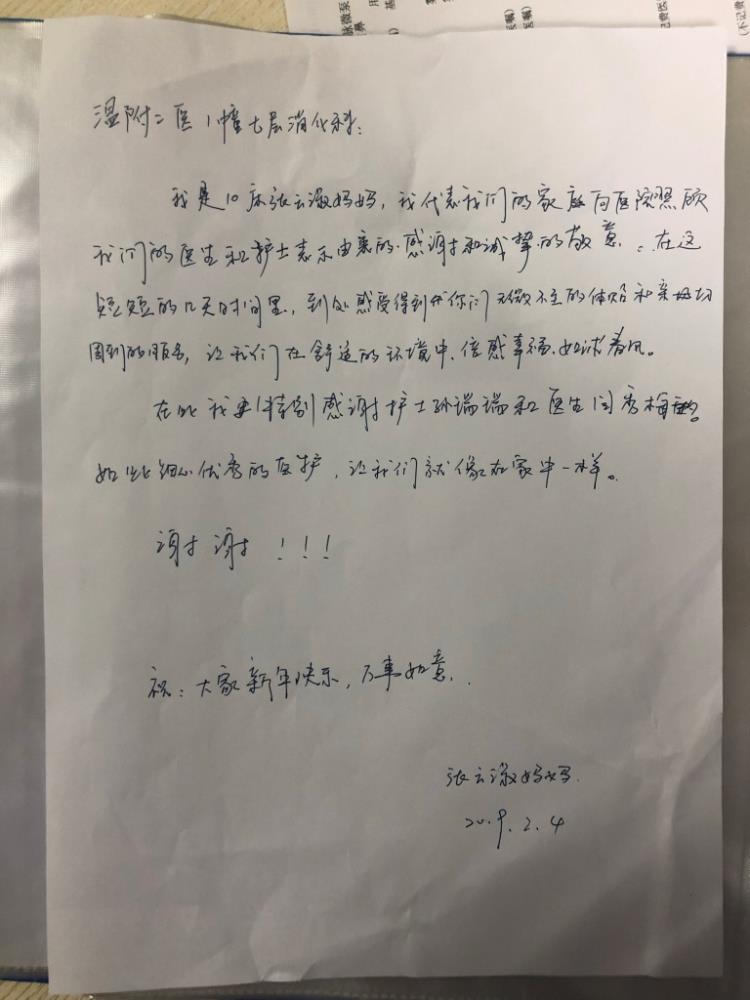 脉微泵
用
基
医嘱)
记费医
(不记费
温附二医1幢七层消化科:
我是10床张云潋妈妈,我代表我们的家庭向医院照顾
我们的医生和护士表示由衷的感谢和诚挚的敬意。在这
短短的几天时间里,到处感受得到你们无微不至的体贴和亲切
周到的服务,让我们在舒适的环境中、倍感幸福、如沐春风。
在此我要特别感谢护士孙瑞瑞和医生闫秀梅
如此细心优秀的医护,让我们就像在家中一样。
谢谢!!!
祝:大家新年快乐,万事如意.
张云潋妈妈.
2019.2.4